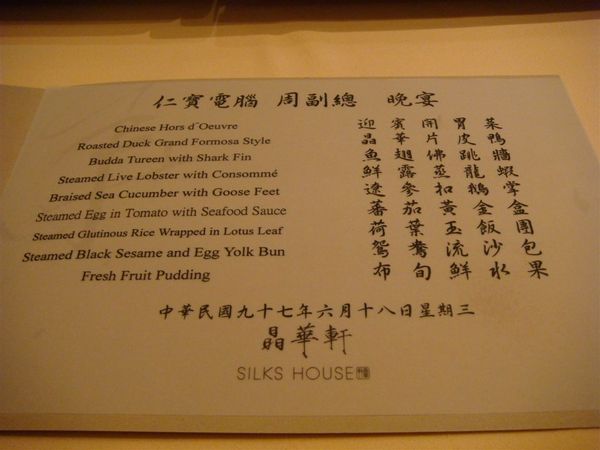 仁寶電腦 周副總 晚宴
Chinese Hors d'Oeuvre 迎賓開胃菜
Roasted Duck Grand Formosa Style 晶華片皮鴨
Budda Tureen with Shark Fin 魚翅佛跳牆
Steamed Live Lobster with Consommé 鮮露蒸龍蝦
Braised Sea Cucumber with Goose Feet 遼參扣鵝掌
Steamed Egg in Tomato with Seafood Sauce 蕃茄黃金盒
Steamed Glutinous Rice Wrapped in Lotus Leaf 荷葉玉飯團
Steamed Black Sesame and Egg Yolk Bun 鴛鴦流沙包
Fresh Fruit Pudding 布甸鮮水果
中華民國九十七年六月十八日星期三
晶華軒
SILKS HOUSE